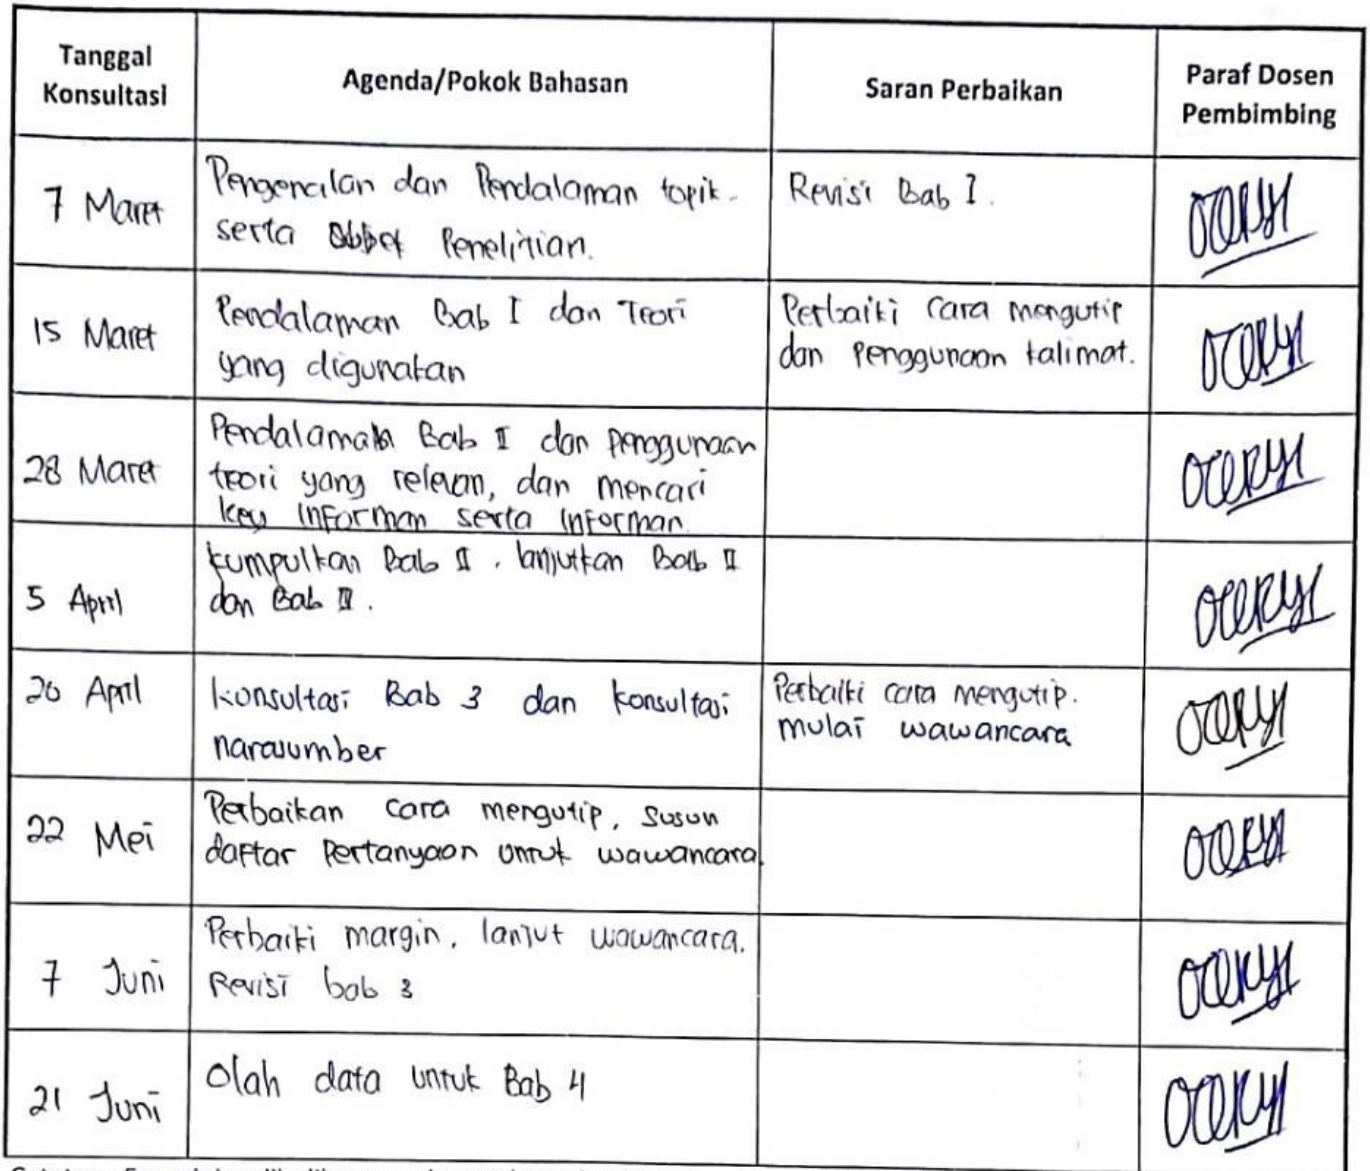 Tanggal Konsultasi
Agenda/Pokok Bahasan
Saran Perbaikan
Paraf Dosen Pembimbing
7 Maret
Pengenalan dan Pendalaman topik
serta Penelitian.
Revisi Bab I.
15 Maret
Pendalaman Bab I dan Teori
yang digunakan
Perbaiki cara mengutip
dan Penggunaan kalimat.
28 Maret
Pendalaman Bab II dan penggunaan
teori yang relevan, dan mencari
key informan serta informan
5 April
kumpulkan Bab II. lanjutkan Bab II
dan Bab
20 April
konsultasi Bab 3 dan konsultasi
narasumber
Perbaiki cara mengutip.
mulai wawancara
22 Mei
Perbaikan cara mengutip, susun
daftar Pertanyaan untuk wawancara
7 Juni
Perbaiki margin, lanjut wawancara.
Revisi bab 3
21 Juni
Olah data untuk Bab 4